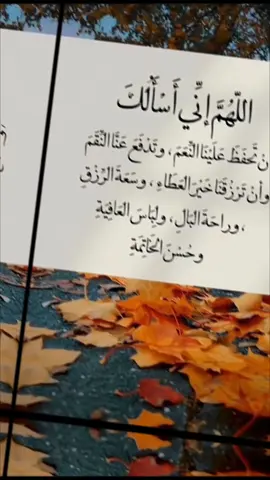 اللَّهُمَّ إِنِّي أَسْأَلُكَ
ن تَحْفَظَ عَلَيْنَا النِّعَمَ، وَتَدْفَعَ عَنَّا النِّقَمَ
وأَنْ تَرْزُقَنَا خَيْرَ العَطَاءِ، وسَعَةَ الرِّزْقِ
، وراحَةَ البَالِ، ولِبَاسَ العَافِيَةِ
وحُسْنَ الخَاتِمَةِ